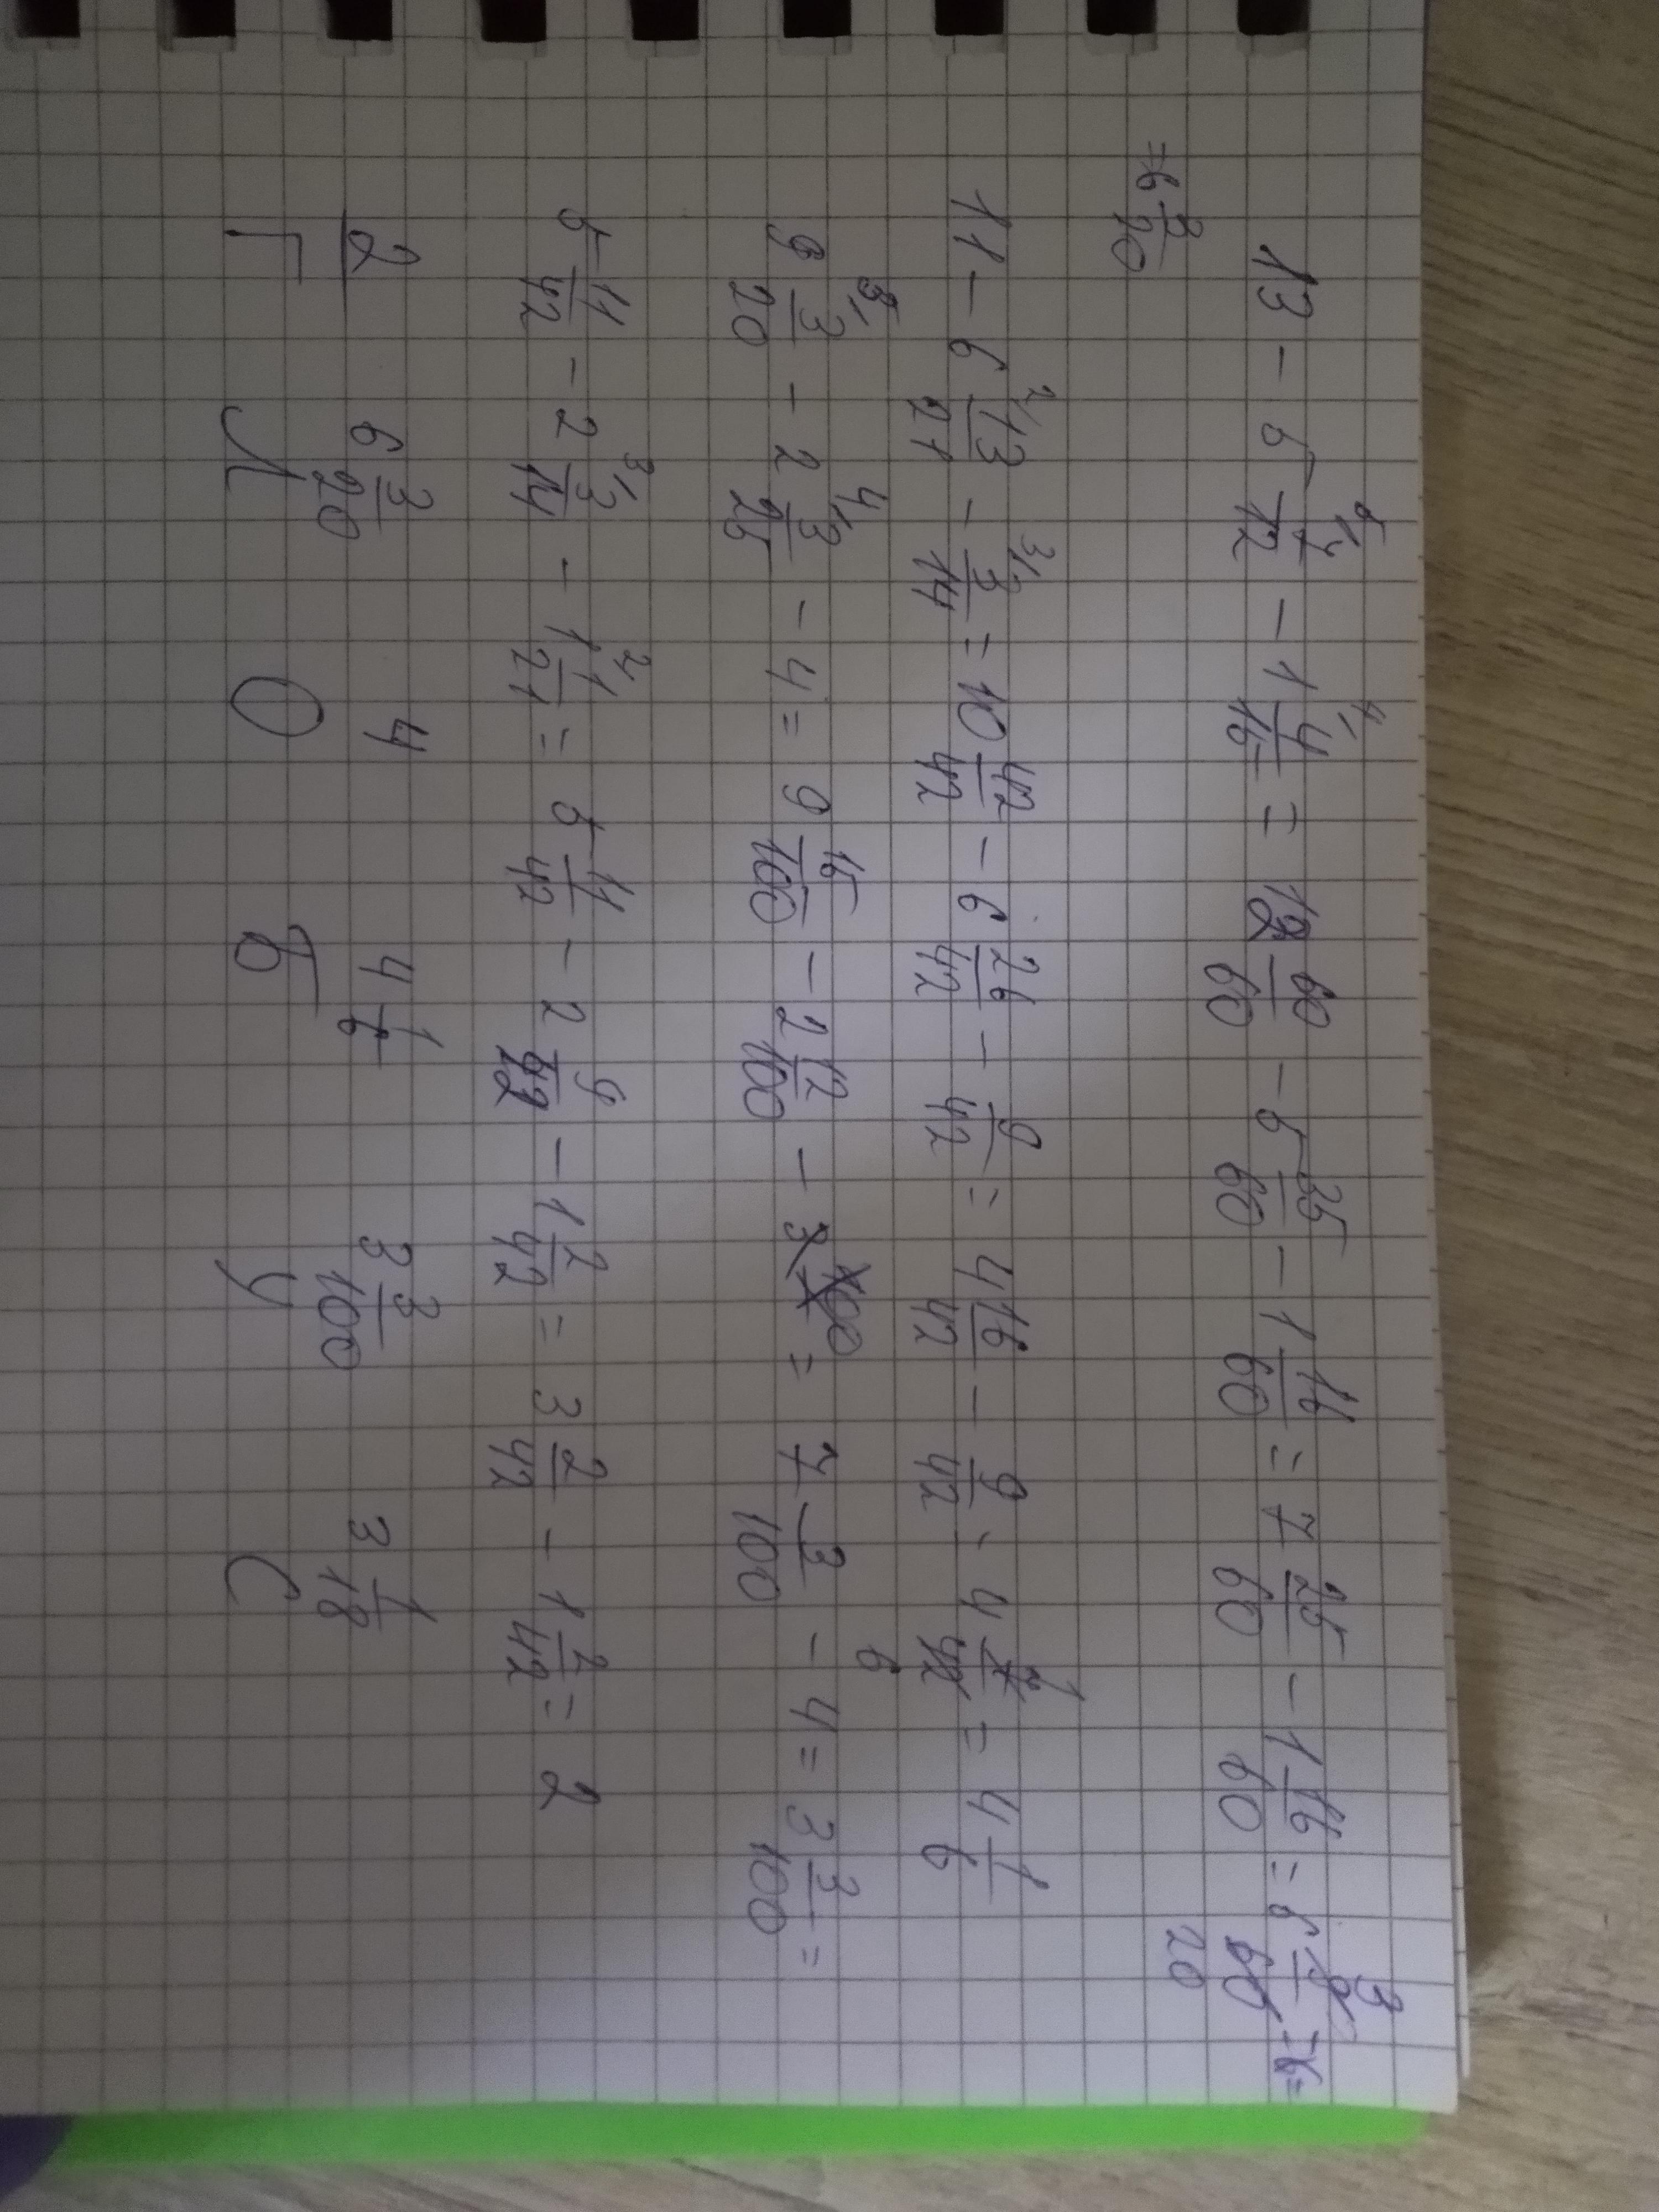 13 - 5 5\7/12 - 1 4\4/15 = 12 60/60 - 5 35/60 - 1 16/60 = 7 25/60 - 1 16/60 = 6 9/60 3 20 =
= 6 3/20
11 - 6 2\13/21 - 3\3/14 = 10 42/42 - 6 26/42 - 9/42 = 4 16/42 - 9/42 = 4 7/42 1 6 = 4 1/6
9 5\3/20 - 2 4\3/25 - 4 = 9 15/100 - 2 12/100 - = 7 3/100 - 4 = 3 3/100 =
5 11/42 - 2 3\3/14 - 1 2\1/21 = 5 11/42 - 2 9/42 - 1 2/42 = 3 2/42 - 1 2/42 = 2
2 6 3/20 4 4 1/6 3 3/100 3 1/18
Г Л О Б У С